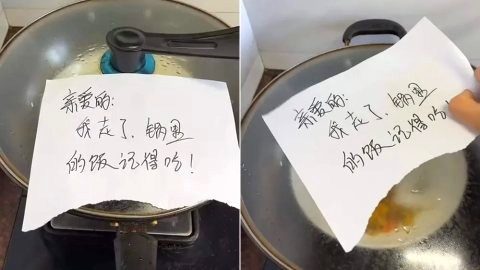 亲爱的：
我走了，锅里
的饭记得吃！
亲爱的：
我走了，锅里
的饭记得吃！